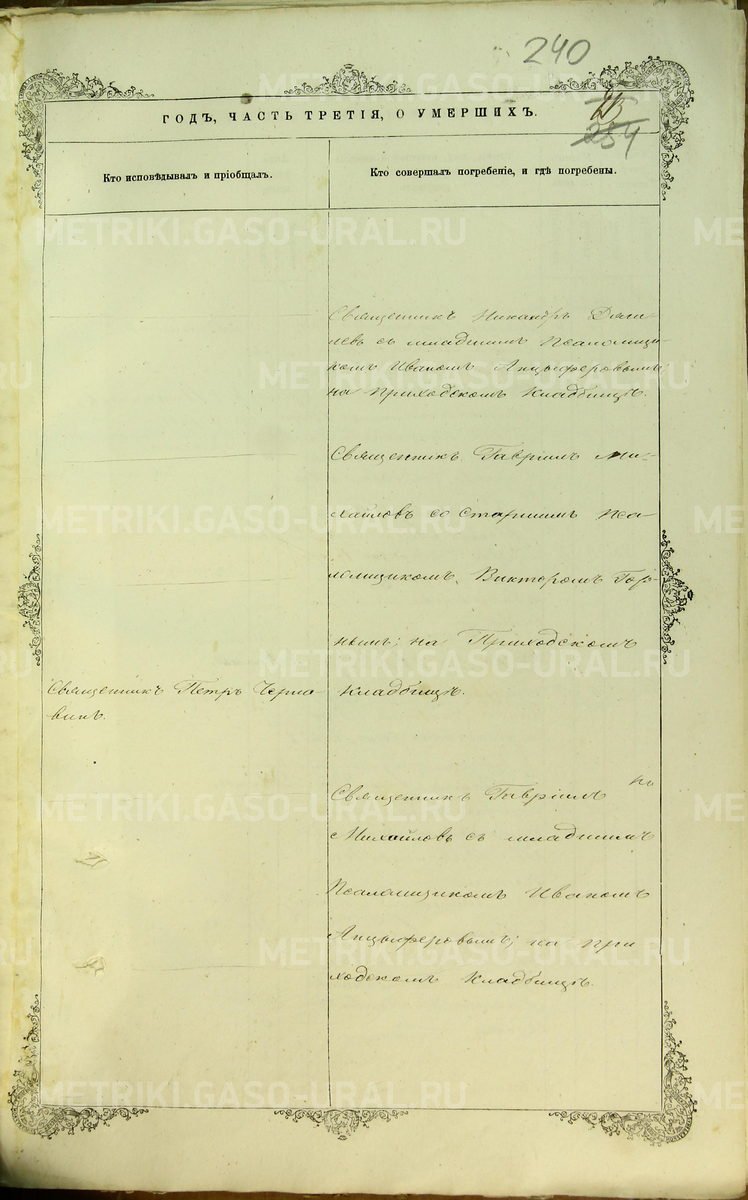 240
254
ГОДЪ, ЧАСТЬ ТРЕТІЯ, О УМЕРШИХЪ.
Кто исповѣдывалъ и пріобщалъ.
Кто совершалъ погребеніе, и гдѣ погребены.
Священникъ Никандръ
съ младшимъ Псаломщи-
комъ Иваномъ Анцыферовымъ;
на Приходскомъ Кладбищѣ.
Священникъ Гавріилъ Ми-
хайловъ со старшимъ Пса-
ломщикомъ Викторомъ Гор-
нымъ; на Приходскомъ
Кладбищѣ.
Священникъ Петръ Черно-
винъ.
Священникъ Гавріилъ
Михайловъ съ младшимъ
Псаломщикомъ Иваномъ
Анцыферовымъ; на При
ходскомъ Кладбищѣ.
METRIKI.GASO-URAL.RU